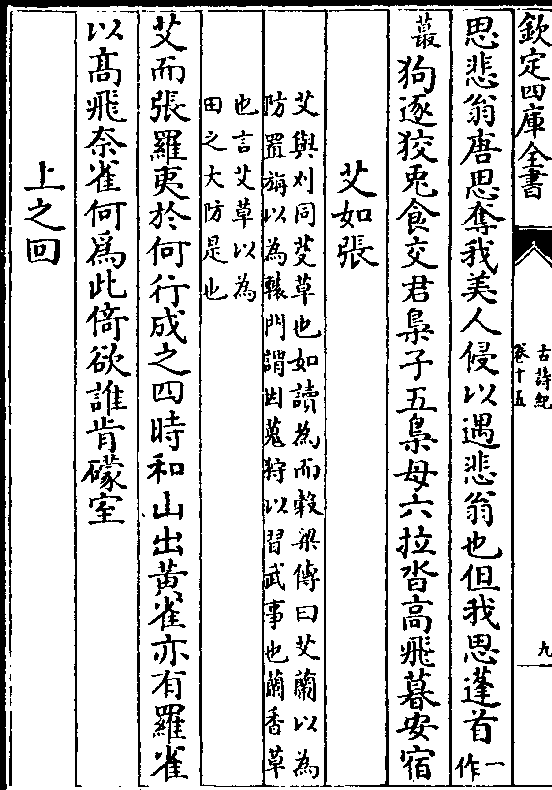 欽定四庫全書
古詩紀
卷十五
九
思悲翁唐思奪我美人侵以遇悲翁也但我思蓬首一作
蕞狗逐狡兎食交君梟子五梟母六拉沓高飛暮安宿
艾如張
艾與刈同芟草也如讀為而穀梁傳曰艾蘭以為
防置旃以為轅門謂因蒐狩以習武事也蘭香草
也言艾草以為
田之大防是也
艾而張羅夷於何行成之四時和山出黄雀亦有羅雀
以高飛奈雀何為此倚欲誰肯礞室
上之回